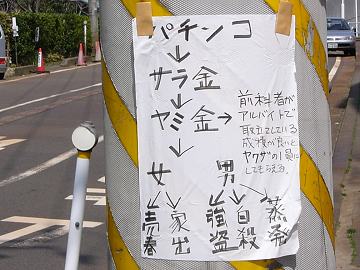 パチンコ
↓
サラ金
↓
ヤミ金→
前科者が
アルバイトで
取立てしている
成績が良いと
ヤクザの1員に
してもらえる。
↓
女 男
売春
家出
強盗
自殺
蒸発